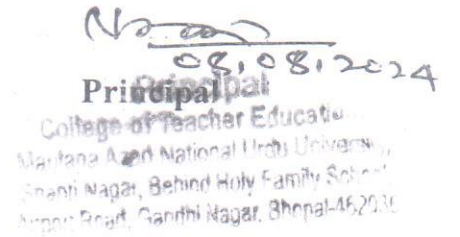 08.08.2024
Principal
Principal
College of Teacher Educatio
Maulana Azad National Urdu University,
Shanti Nagar, Behind Holy Family School
Airport Road, Gandhi Nagar, Bhopal-462036